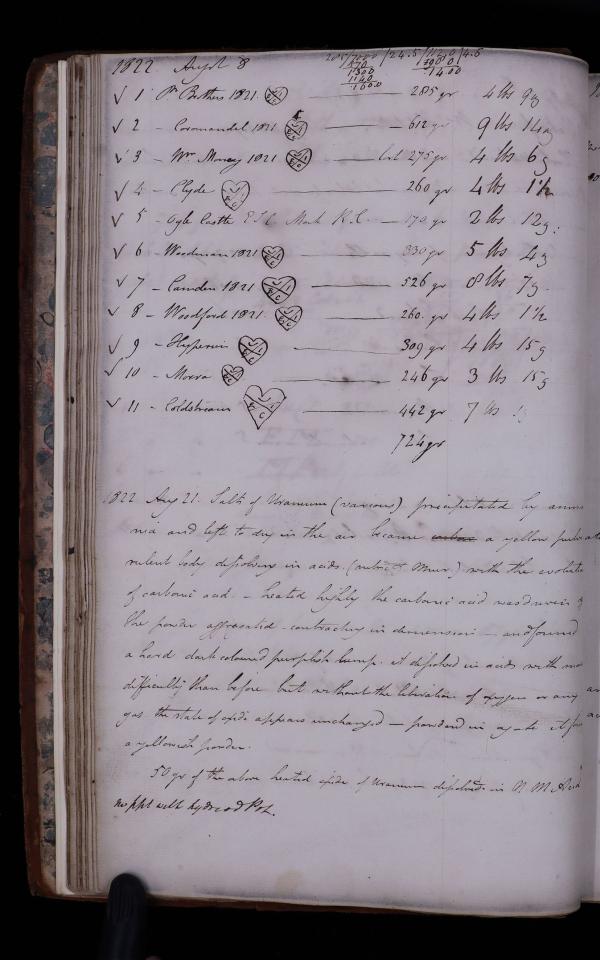 1822 Augst 8
205/7200 /24.5 /112.0 /4.6
1300
1140
1000 1400
√ 1 Ps. Brothers 1821 ——— 285 gr 4 lbs 9 g
√ 2 – Coromandel 1821 ——— 612 gr 9 lbs 14 g
√ 3 – Wm. Money 1821 ——— 275 gr 4 lbs 6 g
√ 4 – Clyde ——— 260 gr 4 lbs 1½
√ 5 – Ogle Castle Mark ——— 170 gr 2 lbs 12 g
√ 6 – Woodman 1821 ——— 330 gr 5 lbs 4 g
√ 7 – Camden 1821 ——— 526 gr 8 lbs 7 g
√ 8 – Woodford 1821 ——— 260 gr 4 lbs 1½
√ 9 – Hyperion ——— 309 gr 4 lbs 15 g
√ 10 – Moira ——— 246 gr 3 lbs 15 g
√ 11 – Coldstream ——— 442 gr 7 lbs
724 gr
1822 Aug 21. Salts of Uranium (various) precipitated by ammo
nia and left to dry in the air became a yellow pulv
rulent body dissolving in acids (nitric & Mur.) with the evolution
of carbonic acid – heated highly the carbonic acid was driven
the powder aggregated – contracting in dimensions – and formed
a hard dark coloured purplish lump. it dissolved in acids with
difficulty than before but without the liberation of oxygen or any
gas the state of oxide appears unchanged – powdered in it
a yellowish powder.
50 gr of the above heated oxide of Uranium dissolved in N. M Acid
no ppt with hydriod Pot.